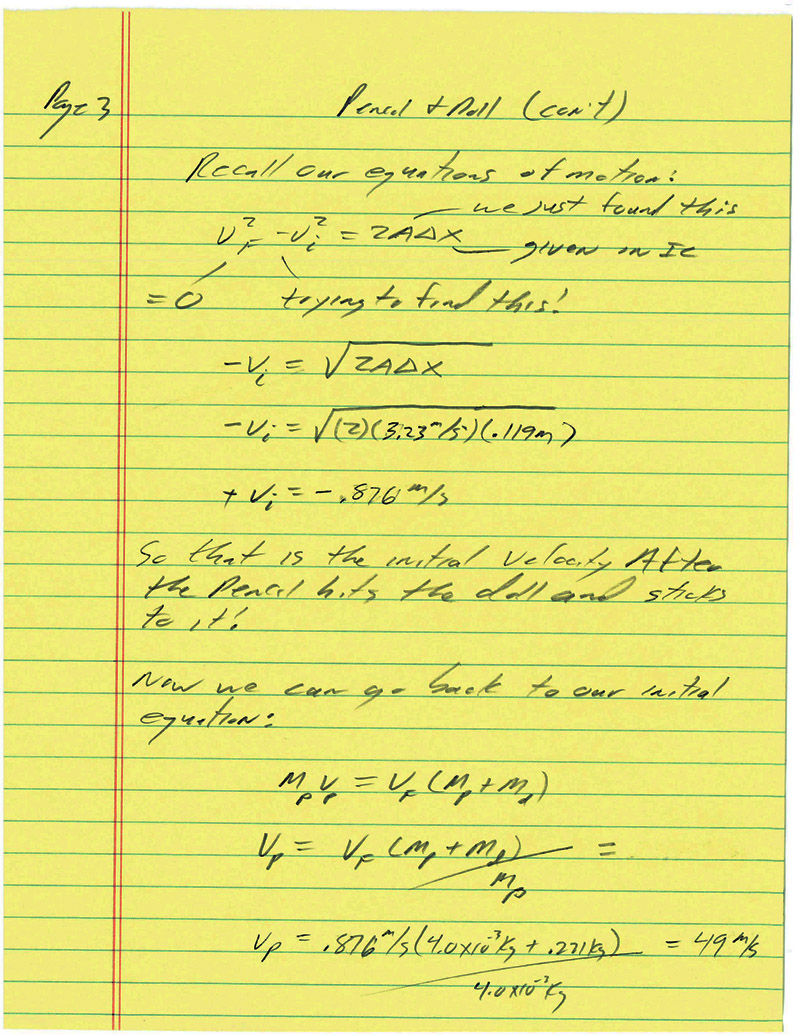 Page 3
Pencil + Doll (con't)
Recall our equations of motion:
we just found this
v_F² - v_i² = 2AΔX
given in IC
= 0 trying to find this!
-v_i = √2AΔX
-v_i = √(2)(3.23 m/s)(.119m)
+v_i = -.876 m/s
So that is the initial velocity After
the Pencil hits the doll and sticks
to it!
Now we can go back to our initial
equation:
M_p v_p = V_F (M_p + M_d)
V_p = V_F (M_p + M_d) / M_p =
V_p = .876 m/s (4.0x10⁻³Kg + .221Kg) / 4.0x10⁻³Kg = 49 m/s